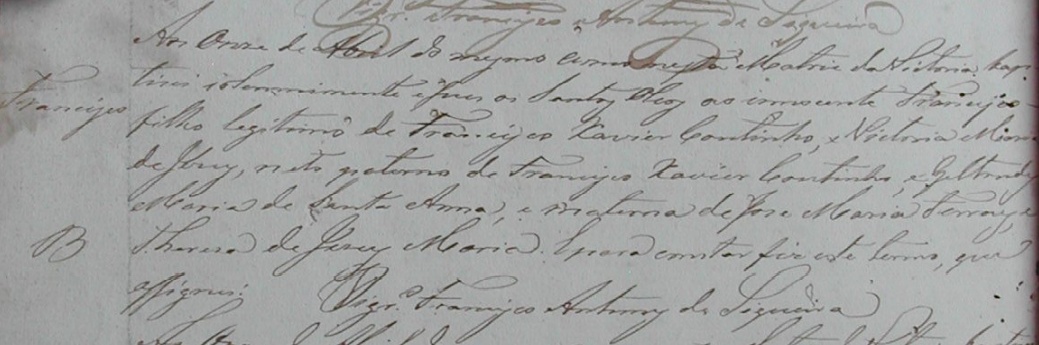 Vigr. Francisco Antuny de Siqueira
Aos Onze de Abril do mesmo anno nesta Matriz da Victoria bap
Francisco
tisei solemnimente e puz os Santos Oleos ao innocente Francisco
filho legitimo de Francisco Xavier Coutinho, e Victoria Maria
de Jesus, neto paterno de Francisco Xavier Coutinho, e Geltrudes
Maria de Santa Anna, e materna de Jose Maria Ferraz, e
B
Theresa de Jesus Maria. E para constar fiz este termo, que
assignei.
Vigr.º Francisco Antuny de Siqueira